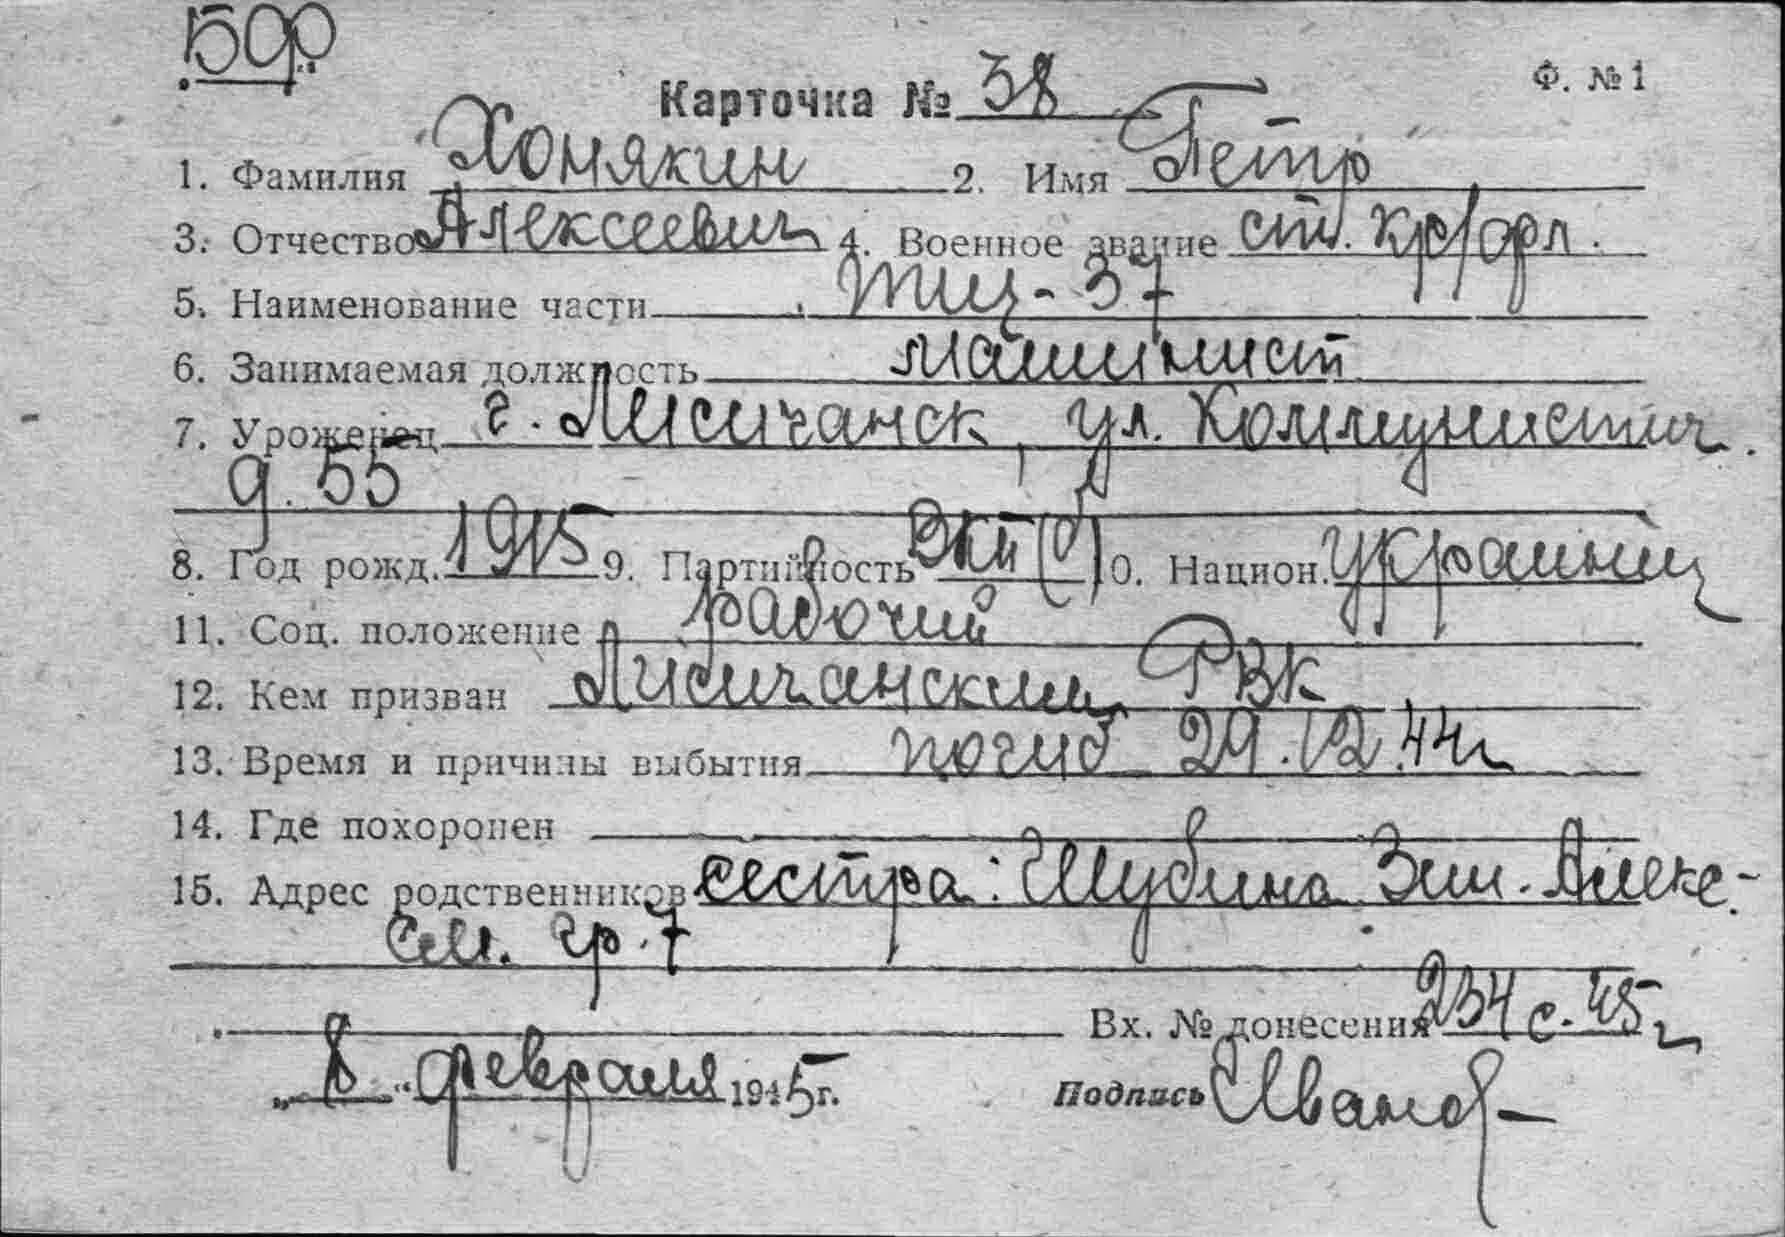 БФ
Ф. № 1
Карточка № 38
1. Фамилия Хомякин 2. Имя Петр
3. Отчество Алексеевич 4. Военное звание ст. кр/офл.
5. Наименование части ТЩ-37
6. Занимаемая должность машинист
7. Уроженец г. Лисичанск, ул. Коммунистич.
д. 55
8. Год рожд. 1915 9. Партийность ВКП(б) 10. Национ. украинец
11. Соц. положение рабочий
12. Кем призван Лисичанским РВК
13. Время и причины выбытия погиб 29.12.44 г
14. Где похоронен
15. Адрес родственников сестра: Шубина Зин. Алекс.-
См. гр. 7
Вх. № донесения 234 с. 45 г
„8" февраля 1945 г.
Подпись Иванов